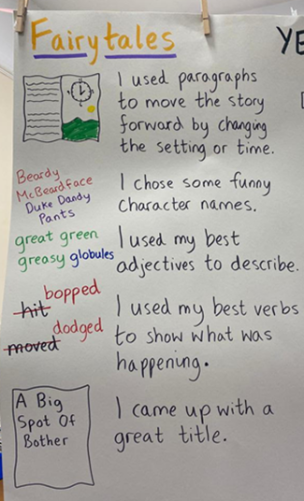 Fairytales
YE
I used paragraphs
to move the story
forward by changing
the setting or time.
Beardy
McBeardface
Duke Dandy
Pants
I chose some funny
character names.
great green
greasy globules
I used my best
adjectives to describe.
hit bopped
moved dodged
I used my best verbs
to show what was
happening.
A Big
Spot Of
Bother
I came up with a
great title.